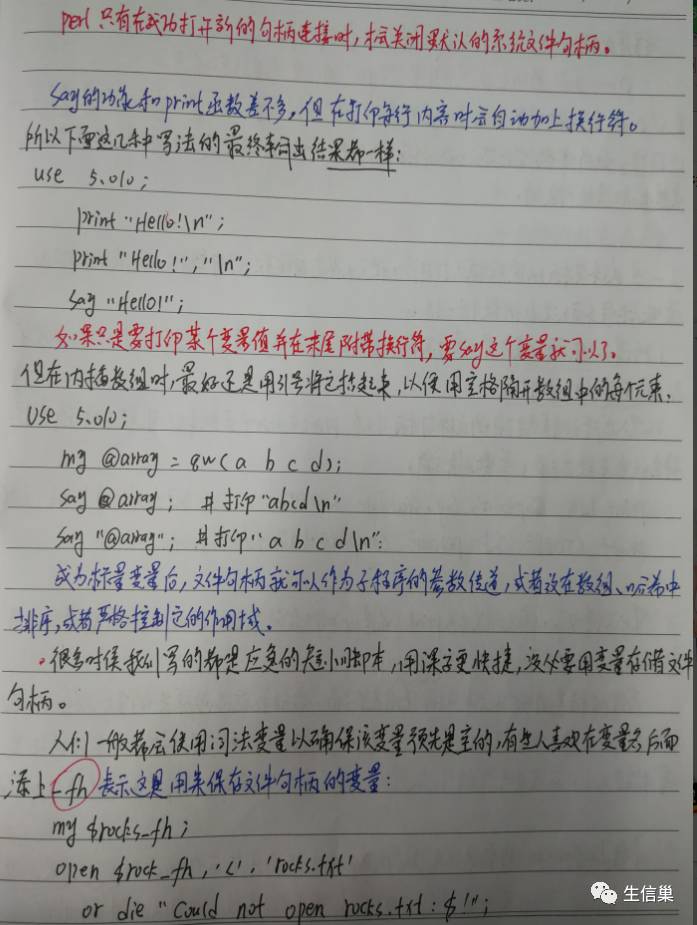 perl 只有在成功打开新的句柄连接时,才会关闭默认的系统文件句柄。
say的功能和print函数差不多,但在打印每行内容时会自动加上换行符。
所以下面这几种写法的最终输出结果都一样:
use 5.010;
print "Hello!\n";
print "Hello!","\n";
say "Hello!";
如果只是要打印某个变量值并在末尾附带换行符,要say这个变量就可以了。
但在内插数组时,最好还是用引号将之括起来,以使用空格隔开数组中的每个元素.
use 5.010;
my @array = qw( a b c d);
say @array ; # 打印"abcd\n"
say "@array"; #打印" a b c d\n":
成为标量变量后,文件句柄就可以作为子程序的参数传递,或者放在数组、哈希中
排序,或者严格控制它的作用域。
·很多时候我们写的都是应急的短小脚本,用裸字更快捷,没必要用变量存储文件
句柄。
人们一般都会使用词法变量以确保该变量预先是空的,有些人喜欢在变量名后面
添上_fh 表示这是用来保存文件句柄的变量:
my $rocks_fh;
open $rock_fh, '<', 'rocks.txt'
or die "Could not open rocks.txt: $!";
生信巢